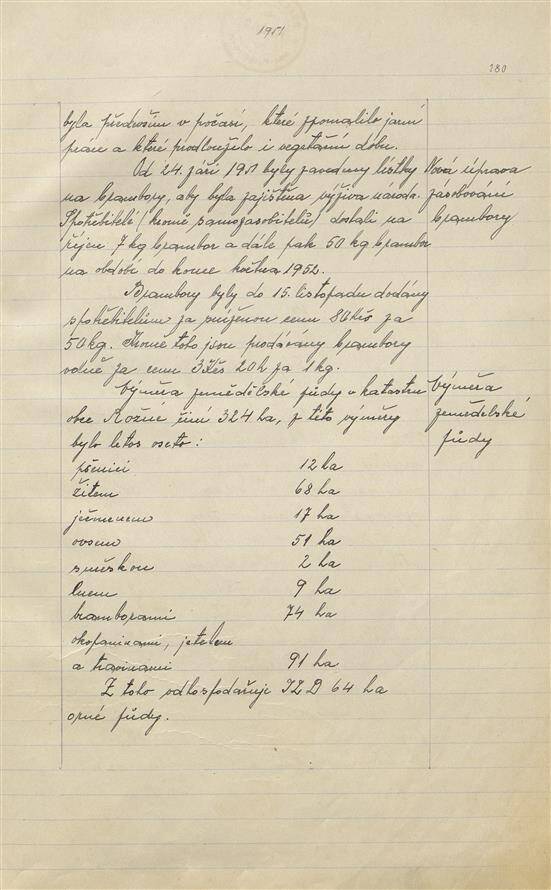 1951
280
byla především v počasí, které zpomalilo jarní
práce a které prodloužilo i vegetační dobu.
Od 24. září 1951 byly zavedeny lístky
na brambory, aby byla zajištěna výživa národa.
Spotřebitelé /kromě samozásobitelů/ dostali na
říjen 7 kg brambor a dále pak 50 kg brambor
na období do konce května 1952.
Nová úprava
zásobování
brambory
Brambory byly do 15. listopadu dodány
spotřebitelům za sníženou cenu 80 Kčs za
50 kg. Kromě toho jsou prodávány brambory
volně za cenu 3 Kčs 20 h za 1 kg.
Výměra zemědělské půdy v katastru
obce Rožne činí 324 ha, z této výměry
bylo letos oseto:
Výměra
zemědělské
půdy
pšenicí 12 ha
žitem 68 ha
ječmenem 17 ha
ovsem 51 ha
směskou 2 ha
lnem 9 ha
bramborami 74 ha
okopaninami, jetelem
a travinami 91 ha
Z toho odhospodařuje JZD 64 ha
orné půdy.